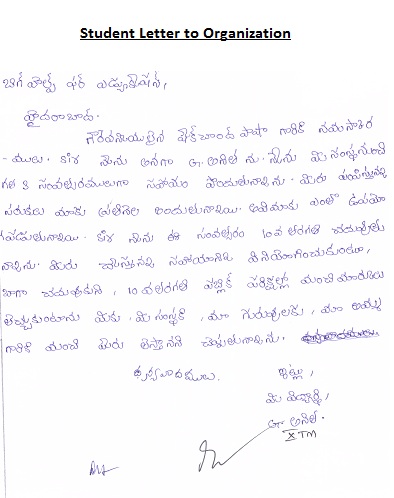 Student Letter to Organization
బిగ్ హెల్ప్ ఫర్ ఎడ్యుకేషన్,
హైదరాబాద్.
గౌరవనీయులైన షేక్ చాంద్ పాషా గారికి నమస్కార
-ములు. సార్ నేను అనగా G. అనిల్ ను. నేను మీ సంస్థనుంచి
గత 3 సంవత్సరములుగా సహాయం పొందుతున్నాను. మీరు పంపిస్తున్న
సరుకులు మాకు ప్రతినెల అందుతున్నాయి. అవి మాకు ఎంతో ఉపయో
గపడుతున్నాయి. సార్ నేను ఈ సంవత్సరం 10వ తరగతి చదువుతు
న్నాను. మీరు చేస్తున్న సహాయాన్ని వినియోగించుకుంటూ,
బాగా చదువుకుని, 10 వ తరగతి పబ్లిక్ పరీక్షల్లో మంచి మార్కులు
తెచ్చుకుంటాను మీకు, మీ సంస్థకి, మా గురువులకు, మా అమ్మ
గారికి మంచి పేరు తెస్తానని చెప్తున్నాను.
ధన్యవాదములు.
ఇట్లు,
మీ విద్యార్థి,
G. అనిల్.
X TM